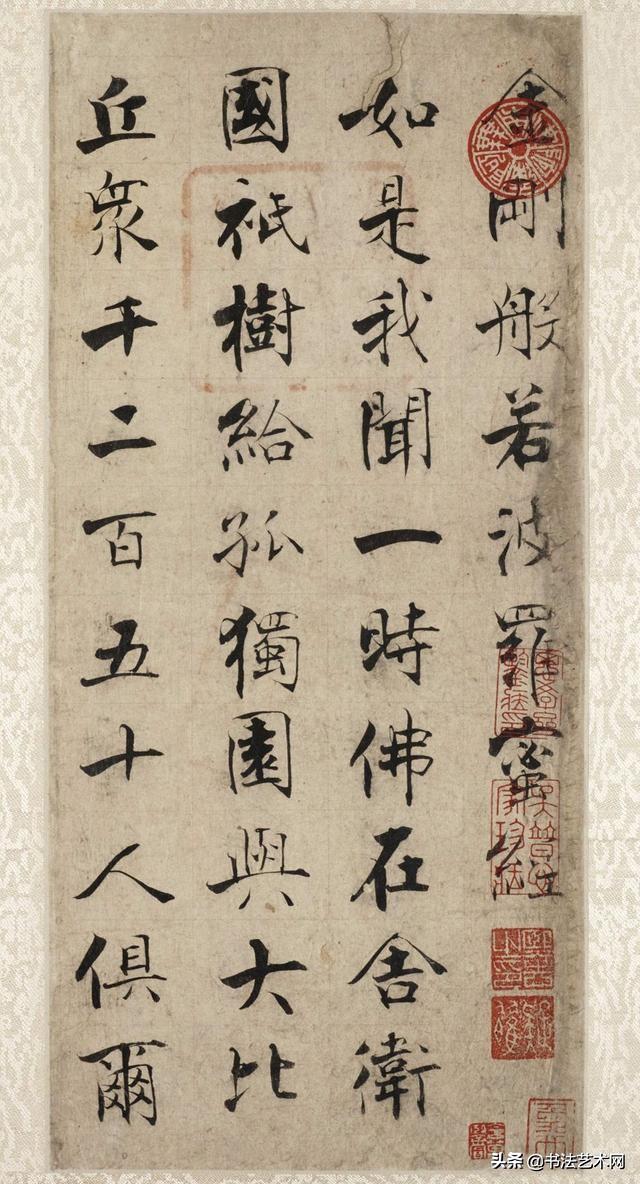 金剛般若波羅蜜經
如是我聞一時佛在舍衛
國祇樹給孤獨園與大比
丘衆千二百五十人俱爾
头条 @书法艺术网